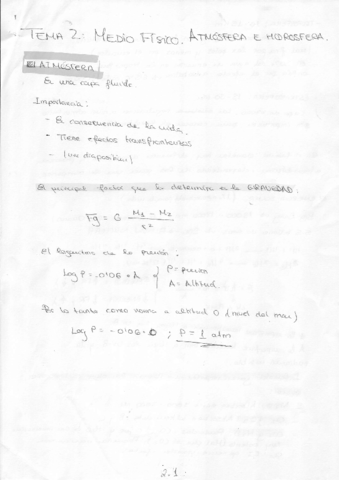 TEMA 2: MEDIO FÍSICO. ATMÓSFERA E HIDROSFERA.
EL ATMÓSFERA
Es una capa fluida
Importancia:
- Es consecuencia de la vida.
- Tiene efectos transfronterizos
- (un diapositiva)
El principal factor que la determina es la GRAVEDAD:
Fg = G M1 - M2 / r²
El logaritmo de la presión.
Log P = -0'06 · A { P = presión
A = Altitud
Por lo tanto como vemos a altitud 0 (nivel del mar)
Log P = -0'06 · 0 ; P = 1 atm
2.1